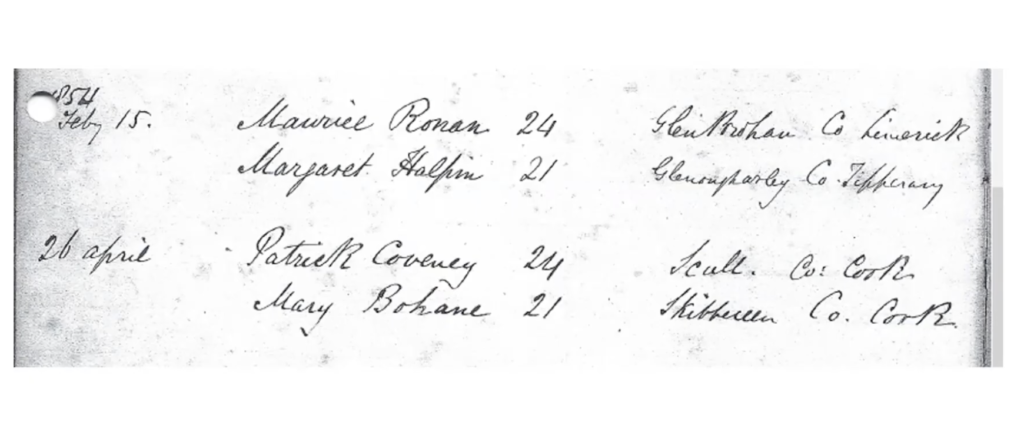 1854
Feby 15. Maurice Ronan 24 GlenBrohan Co Limerick
Margaret Halpin 21 Co Tipperary
26 april Patrick Coveney 24 Scull. Co: Cork
Mary Bohane 21 Skibbereen Co. Cork